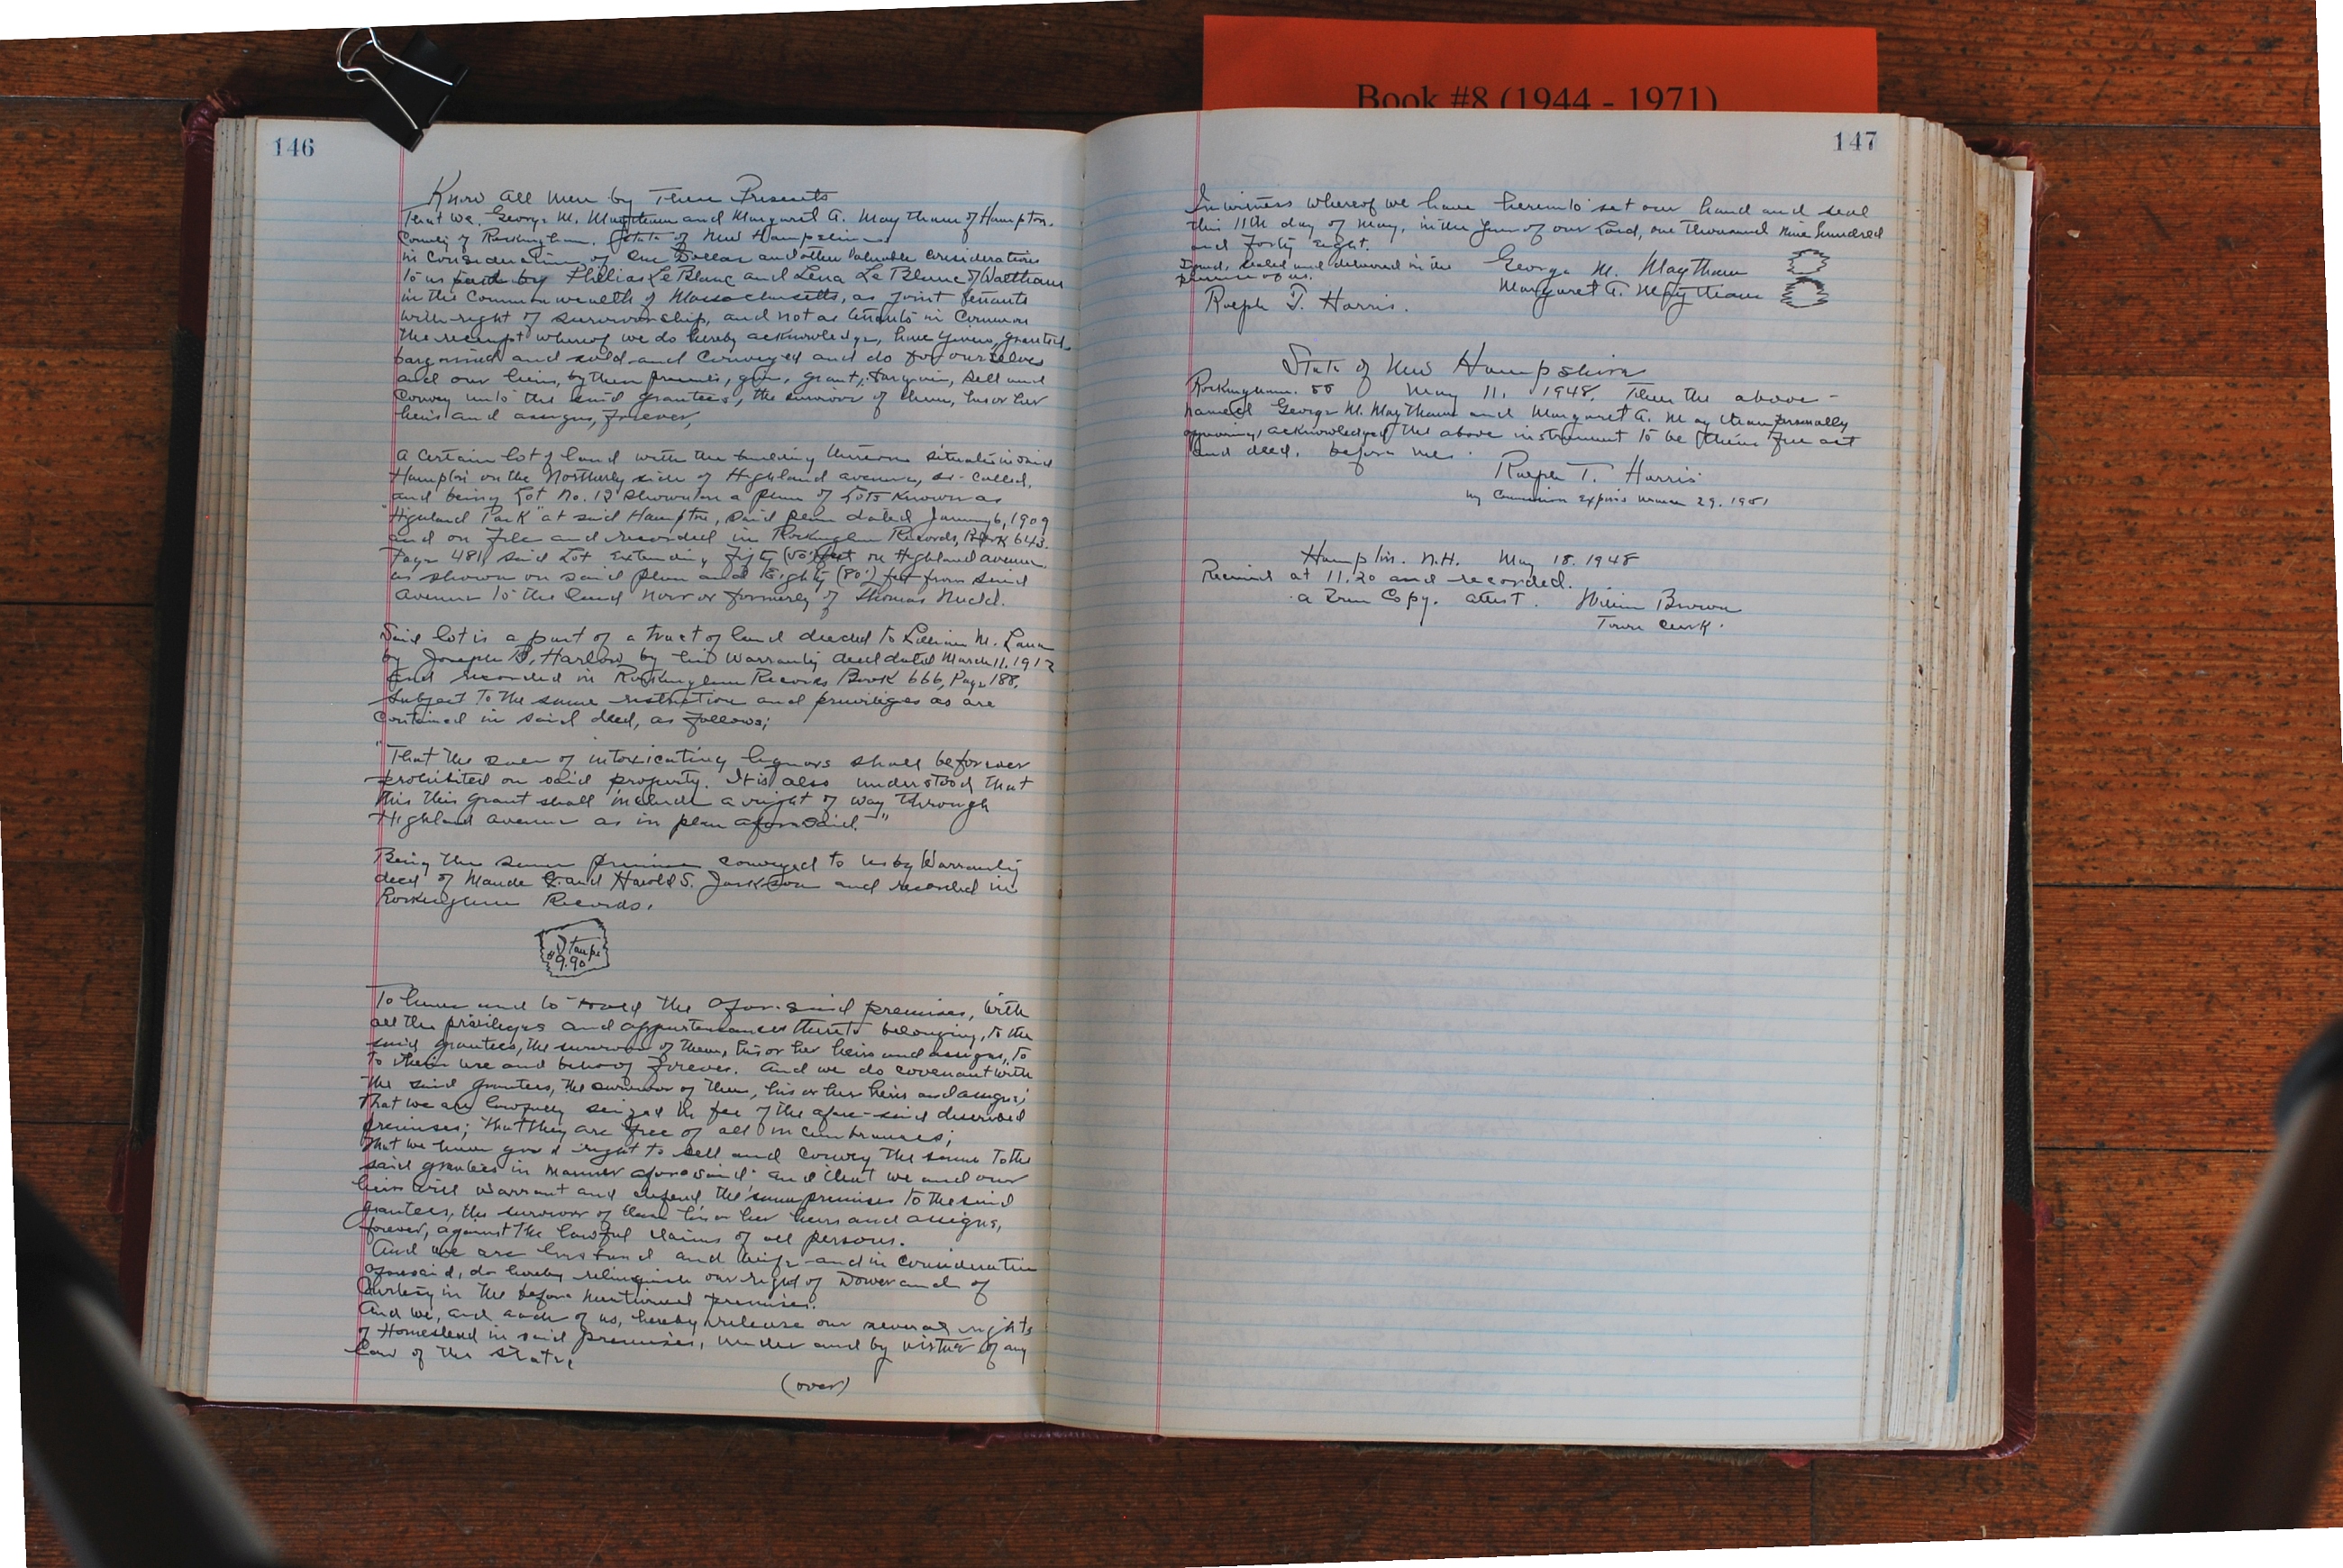 Book #8 (1944 - 1971)
146
Know all men by These Presents
That we. George M. Maytham and Margaret A. Maytham of Hampton.
County of Rockingham. State of New Hampshire
in consideration of One Dollar and other Valuable Considerations
to us paid by Philias Le Blanc and Lena Le Blanc of Waltham
in the Commonwealth of Massachusetts, as joint tenants
with right of survivorship, and not as tenants in Common
the receipt whereof we do hereby acknowledge, have given, granted
bargained and sold and Conveyed and do for ourselves
and our heirs, by these presents, give, grant, bargain, sell and
Convey unto the said grantees, the survivor of them, his or her
heirs and assigns, forever,
A Certain lot of land with the building thereon situate in said
Hampton on the Northerly side of Highland avenue, so-called,
and being Lot No. 12 shown on a plan of Lots known as
"Highland Park" at said Hampton, said plan dated January 6, 1909
and on file and recorded in Rockingham Records, Book 643.
Page 481, said Lot extending fifty (50') feet on Highland avenue
as shown on said plan and Eighty (80') feet from said
avenue to the land now or formerly of Thomas Nudd.
Said lot is a part of a tract of land deeded to Lillian M. Lane
by Joseph B. Harlow by his Warranty deed dated March 11, 1912
and recorded in Rockingham Records Book 666, Page 188.
Subject to the same restriction and privileges as are
contained in said deed, as follows;
"That the sale of intoxicating liquors shall be forever
prohibited on said property. It is also understood that
this this grant shall include a right of way through
Highland avenue as in plan aforesaid."
Being the same premises conveyed to us by Warranty
deed of Maude G. and Harold S. Jackson and recorded in
Rockingham Records.
Stamps
$9.90
To have and to hold the afore-said premises, with
all the privileges and appurtenances thereto belonging, to the
said grantees, the survivor of them, his or her heirs and assigns, to
to their use and behoof forever. And we do covenant with
the said grantees, the survivor of them, his or her heirs and assigns;
that we are lawfully seized in fee of the afore-said described
premises; that they are free of all incumbrances;
that we have good right to sell and convey the same to the
said grantees in manner aforesaid; and that we and our
heirs will warrant and defend the same premises to the said
grantees, the survivor of them his or her heirs and assigns,
forever, against the lawful claims of all persons.
And we are husband and wife and in consideration
aforesaid, do hereby relinquish our right of Dower and of
Curtesy in the before mentioned premises.
And we, and each of us, hereby release our several rights
of Homestead in said premises, under and by virtue of any
law of the State,
(over)
147
In witness whereof we have hereunto set our hand and seal
this 11th day of May, in the year of our Lord, one thousand nine hundred
and forty eight.
Signed, sealed and delivered in the
presence of us.
George M. Maytham
Margaret A. Maytham
Ralph T. Harris.
State of New Hampshire
Rockingham. SS May 11, 1948. Then the above-
named George M. Maytham and Margaret A. Maytham personally
appearing, acknowledged the above instrument to be their free act
and deed, before me.
Ralph T. Harris
my Commission expires March 29. 1951
Hampton. N.H. May 18. 1948
Received at 11.20 and recorded.
a True Copy. attest. William Brown
Town Clerk.